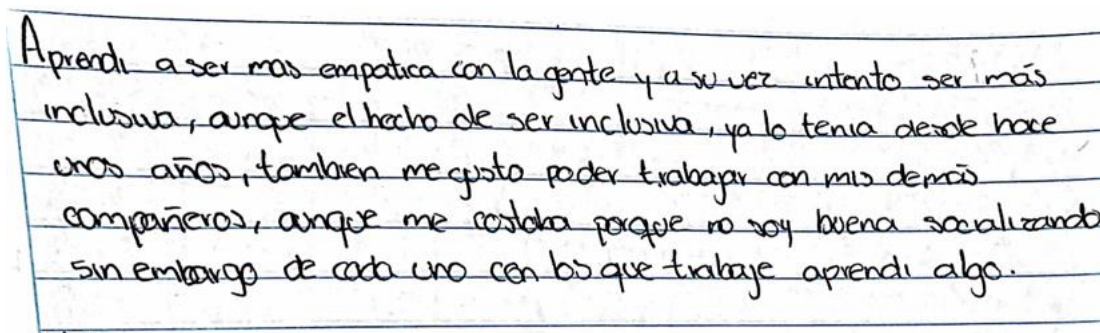 Aprendi a ser mas empatica con la gente y a su vez intento ser más
inclusiva, aunque el hecho de ser inclusiva, ya lo tenia desde hace
unos años, tambien me gusto poder trabajar con mis demás
compañeros, aunque me costaba porque no soy buena socializando
sin embargo de cada uno con los que trabaje aprendi algo.